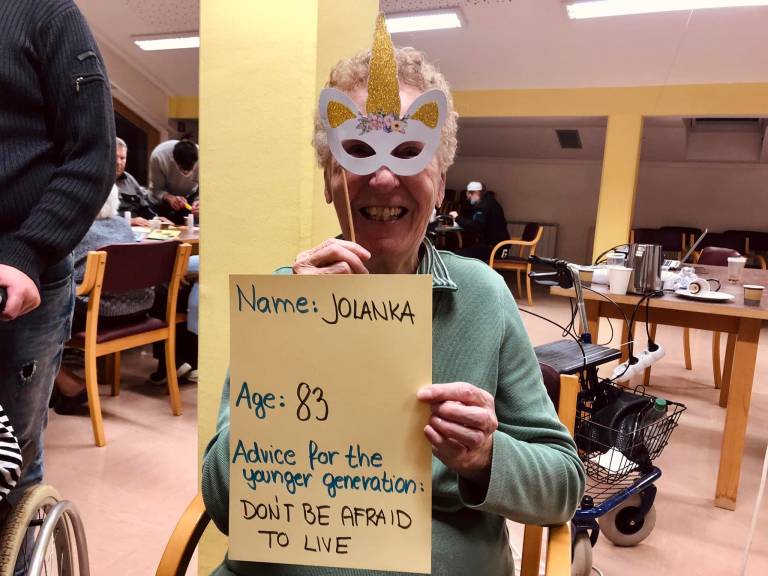 Name: JOLANKA
Age: 83
Advice for the
younger generation:
DON'T BE AFRAID
TO LIVE